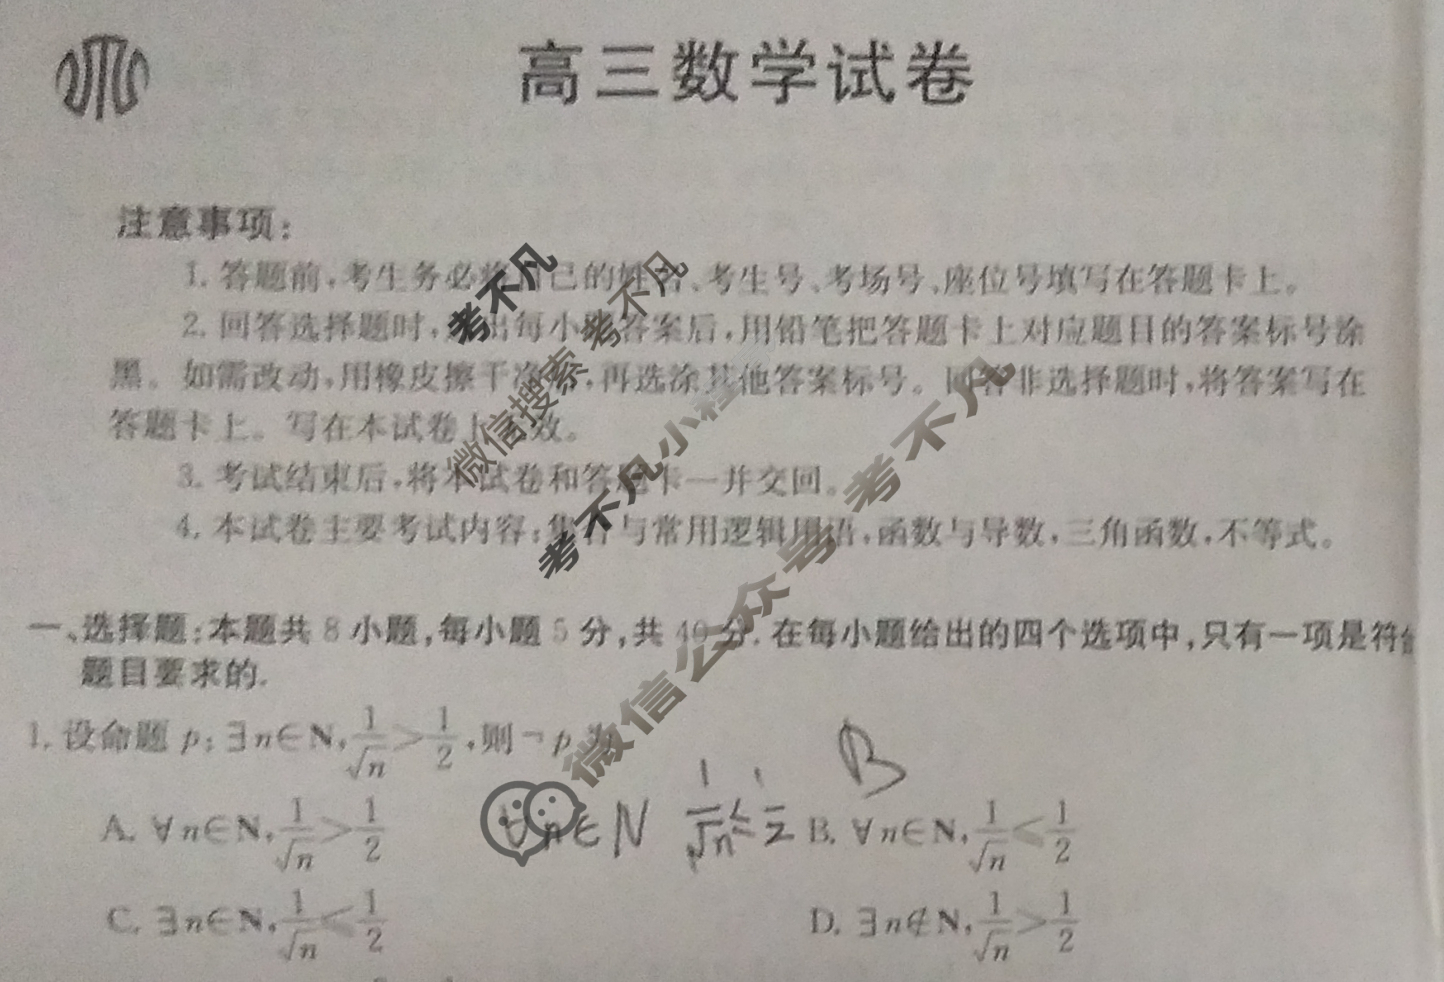 高三数学试卷
注意事项:
1. 答题前,考生务必将自己的姓名、考生号、考场号、座位号填写在答题卡上。
2. 回答选择题时,选出每小题答案后,用铅笔把答题卡上对应题目的答案标号涂
黑。如需改动,用橡皮擦干净后,再选涂其他答案标号。回答非选择题时,将答案写在
答题卡上。写在本试卷上无效。
3. 考试结束后,将本试卷和答题卡一并交回。
4. 本试卷主要考试内容:集合与常用逻辑用语,函数与导数,三角函数,不等式。
一、选择题:本题共 8 小题,每小题 5 分,共 40 分. 在每小题给出的四个选项中,只有一项是符合
题目要求的.
1. 设命题 p: ∃n∈N, 1/√n > 1/2, 则¬p 为
B
A. ∀n∈N, 1/√n > 1/2
∀n∈N 1/√n ≤ 1/2
B. ∀n∈N, 1/√n ≤ 1/2
C. ∃n∈N, 1/√n ≤ 1/2
D. ∃n∉N, 1/√n > 1/2
考不凡
微信搜索 考不凡
考不凡小程
微信公众号 考不凡